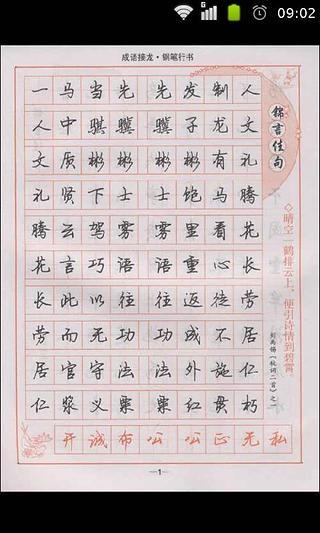 09:02
成语接龙·钢笔行书
一马当先先发制人
人中骐骥骥子龙文
文质彬彬彬彬有礼
礼贤下士士饱马腾
腾云驾雾雾里看花
花言巧语语重心长
长此以往往返徒劳
劳而无功功成不居
居官守法法外施仁
仁浆义粟粟红贯朽
开诚布公公正无私
锦言佳句
◇晴空一鹤排云上，便引诗情到碧霄。
刘禹锡《秋词二首》之一
—1—